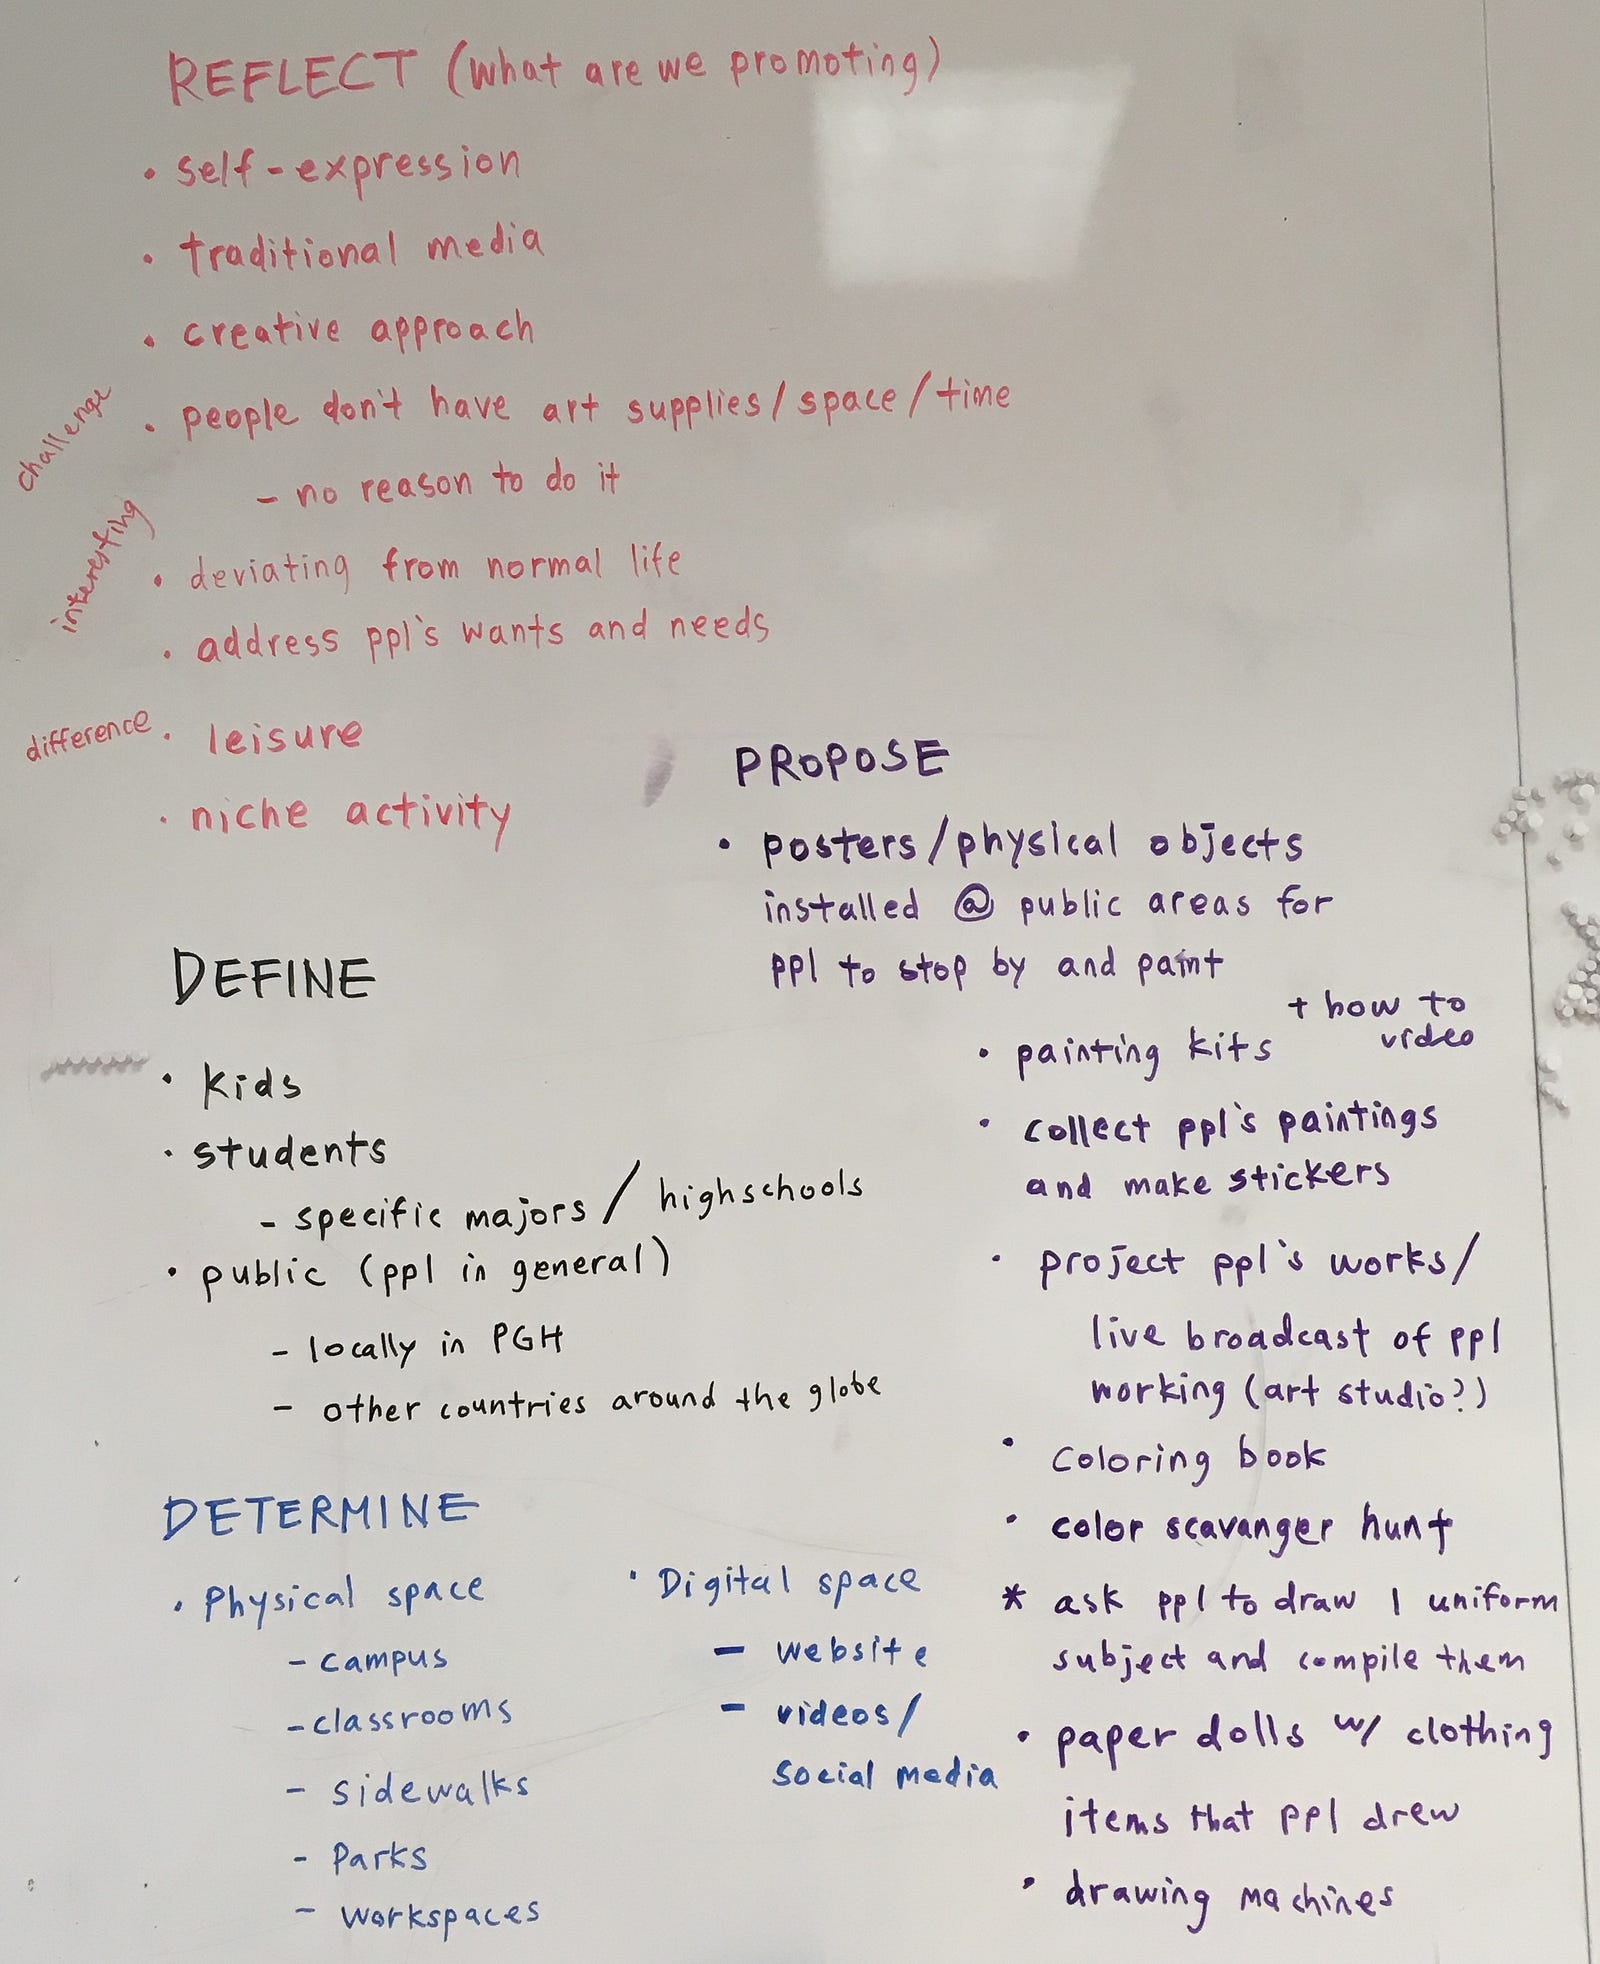 REFLECT (what are we promoting)
• self-expression
• traditional media
• creative approach
challenge
• people don't have art supplies/space/time
- no reason to do it
interesting
• deviating from normal life
• address ppl's wants and needs
difference
• leisure
• niche activity
DEFINE
• kids
• students
- specific majors / highschools
• public (ppl in general)
- locally in PGH
- other countries around the globe
DETERMINE
• Physical space
- campus
- classrooms
- sidewalks
- Parks
- workspaces
• Digital space
- website
- videos/
social media
PROPOSE
• posters/physical objects
installed @ public areas for
ppl to stop by and paint
• painting kits + how to
video
• collect ppl's paintings
and make stickers
• project ppl's works/
live broadcast of ppl
working (art studio?)
• coloring book
• color scavanger hunt
* ask ppl to draw 1 uniform
subject and compile them
• paper dolls w/ clothing
items that ppl drew
• drawing machines